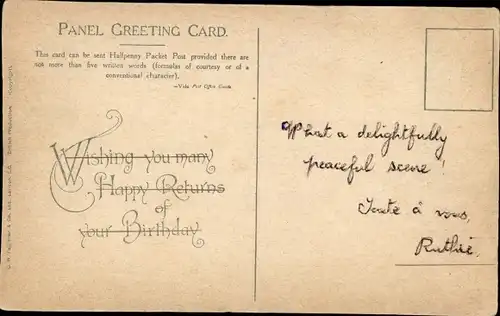 PANEL GREETING CARD.
This card can be sent Halfpenny Packet Post provided there are
not more than five written words (formulas of courtesy or of a
conventional character).
—Vide Post Office Guide.
Wishing you many
Happy Returns
of
your Birthday
What a delightfully
peaceful scene!
Toute à vous,
Ruthie.